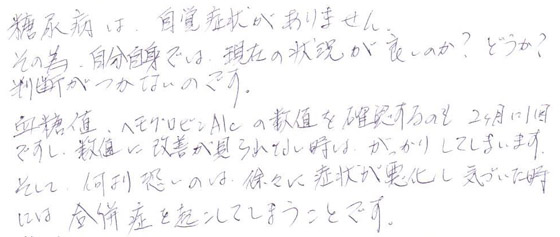 糖尿病は、自覚症状がありません。
その為、自分自身では、現在の状況が良いのか?どうか?
判断がつかないのです。
血糖値、ヘモグロビンA1cの数値を確認するのも2ヶ月に1回
ですし、数値に改善が見られない時は、がっかりしてしまいます。
そして、何より恐いのは、徐々に症状が悪化し気づいた時
には合併症を起こしてしまうことです。